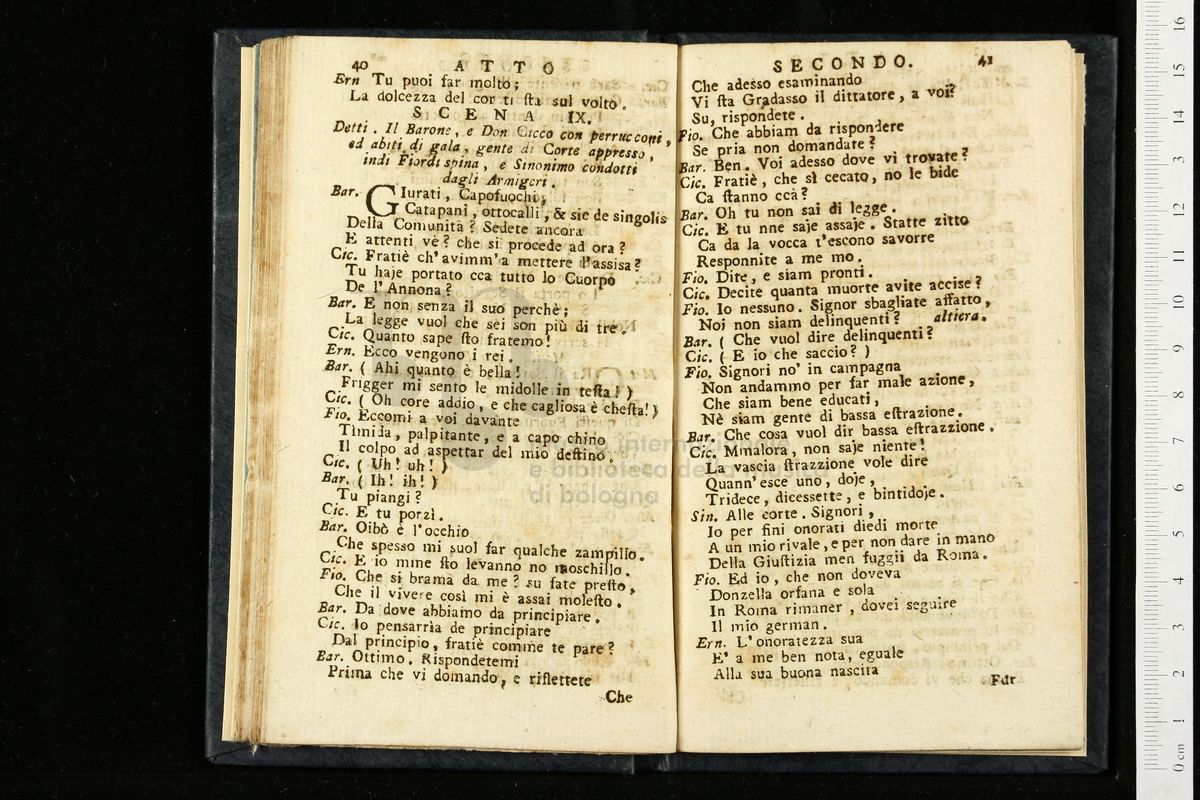 40 ATTO
Ern Tu puoi far molto;
La dolcezza del cor ti ſta sul volto.
SCENA IX.
Detti. Il Barone, e Don Cicco con perrucconi,
ed abiti di gala, gente di Corte appresso,
indi Fiordispina, e Sinonimo condotti
dagli Armigeri.
Bar. GIurati, Capofuochi,
Catapani, ottocalli, & sic de singolis
Della Comunità? Sedete ancora
E attenti vè? che si procede ad ora?
Cic. Fratiè ch'avimm'a mettere l'assisa?
Tu haje portato cca tutto lo Cuorpo
De l'Annona?
Bar. E non senza il suo perchè;
La legge vuol che sei son più di tre.
Cic. Quanto sape ſto fratemo!
Ern. Ecco vengono i rei.
Bar. ( Ahi quanto è bella!
Frigger mi sento le midolle in teſta! )
Cic. ( Oh core addio, e che cagliosa è cheſta! )
Fio. Eccomi a voi davante
Timida, palpitante, e a capo chino
Il colpo ad aspettar del mio deſtino.
Cic. ( Uh! uh! )
Bar. ( Ih! ih! )
Tu piangi?
Cic. E tu porzì.
Bar. Oibò è l'occhio
Che spesso mi suol far qualche zampillo.
Cic. E io mme ſto levanno no moschillo.
Fio. Che si brama da me? su fate preſto,
Che il vivere così mi è assai moleſto.
Bar. Da dove abbiamo da principiare.
Cic. Io pensarria de principiare
Dal principio, fratiè comme te pare?
Bar. Ottimo. Rispondetemi
Prima che vi domando, e riflettete
Che
SECONDO. 41
Che adesso esaminando
Vi ſta Gradasso il dittatore, a voi?
Su, rispondete.
Fio. Che abbiam da rispondere
Se pria non domandate?
Bar. Ben. Voi adesso dove vi trovate?
Cic. Fratiè, che sì cecato, no le bide
Ca ſtanno ccà?
Bar. Oh tu non sai di legge.
Cic. E tu nne saje assaje. Statte zitto
Ca da la vocca t'escono savorre
Responnite a me mo.
Fio. Dite, e siam pronti.
Cic. Decite quanta muorte avite accise?
Fio. Io nessuno. Signor sbagliate affatto,
Noi non siam delinquenti? altiera.
Bar. ( Che vuol dire delinquenti?
Cic. ( E io che saccio? )
Fio. Signori no' in campagna
Non andammo per far male azione,
Che siam bene educati,
Nè siam gente di bassa eſtrazione.
Bar. Che cosa vuol dir bassa eſtrazzione.
Cic. Mmalora, non saje niente!
La vascia ſtrazzione vole dire
Quann'esce uno, doje,
Tridece, dicessette, e bintidoje.
Sin. Alle corte. Signori,
Io per fini onorati diedi morte
A un mio rivale, e per non dare in mano
Della Giuſtizia men fuggii da Roma.
Fio. Ed io, che non doveva
Donzella orfana e sola
In Roma rimaner, dovei seguire
Il mio german.
Ern. L'onoratezza sua
E' a me ben nota, eguale
Alla sua buona nascita
Far
museo internazionale
e biblioteca della musica
di bologna
16
15
14
13
12
11
10
9
8
7
6
5
4
3
2
1
0 cm